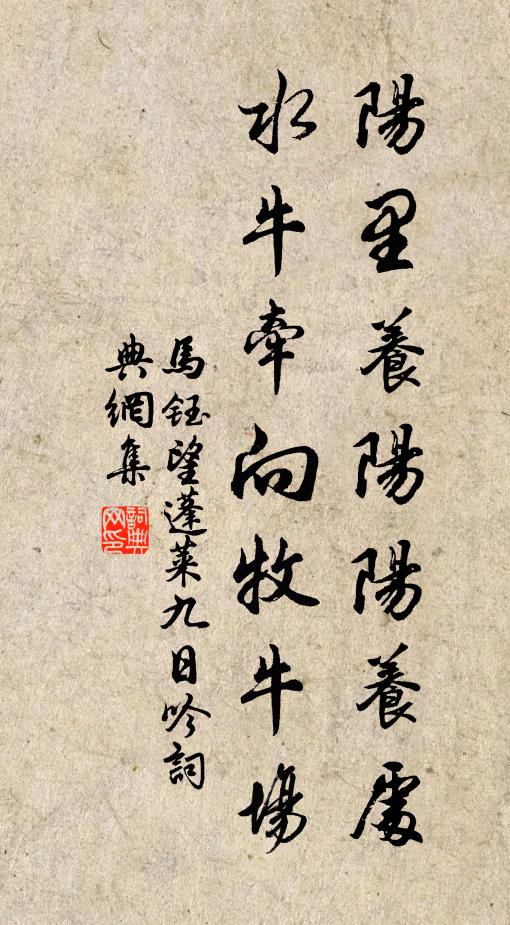 陽里養陽陽養處
水牛牽向牧牛場
馬鈺望蓬萊九日吟詞
典網集
詞典網印